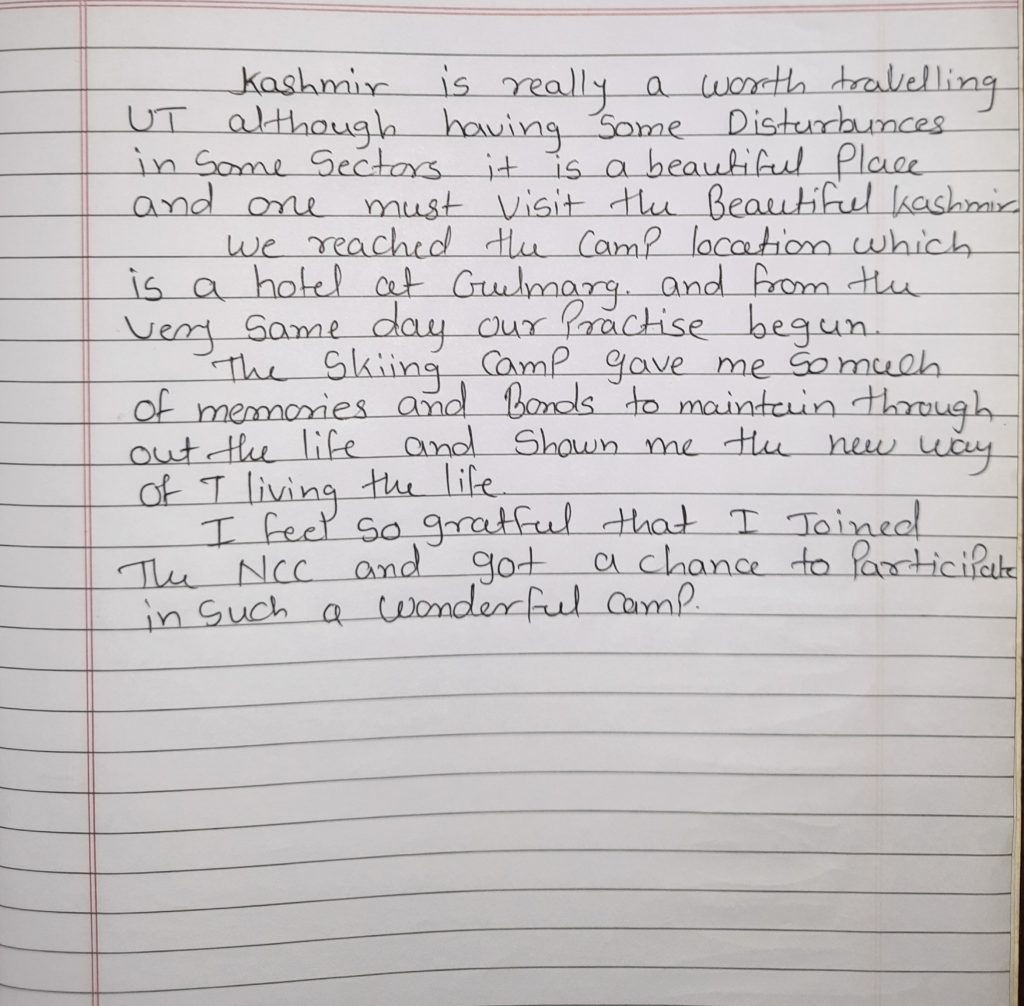 Kashmir is really a worth travelling
UT although having some Disturbunces
in Some Sectors it is a beautiful Place
and one must visit the Beautiful Kashmir
We reached the Camp location which
is a hotel at Gulmarg. and from the
very same day our Practise begun.
The Skiing Camp gave me so much
of memories and Bonds to maintain through
out the life and Shown me the new way
of I living the life.
I feel so gratful that I Joined
The NCC and got a chance to Participate
in Such a wonderful camp.